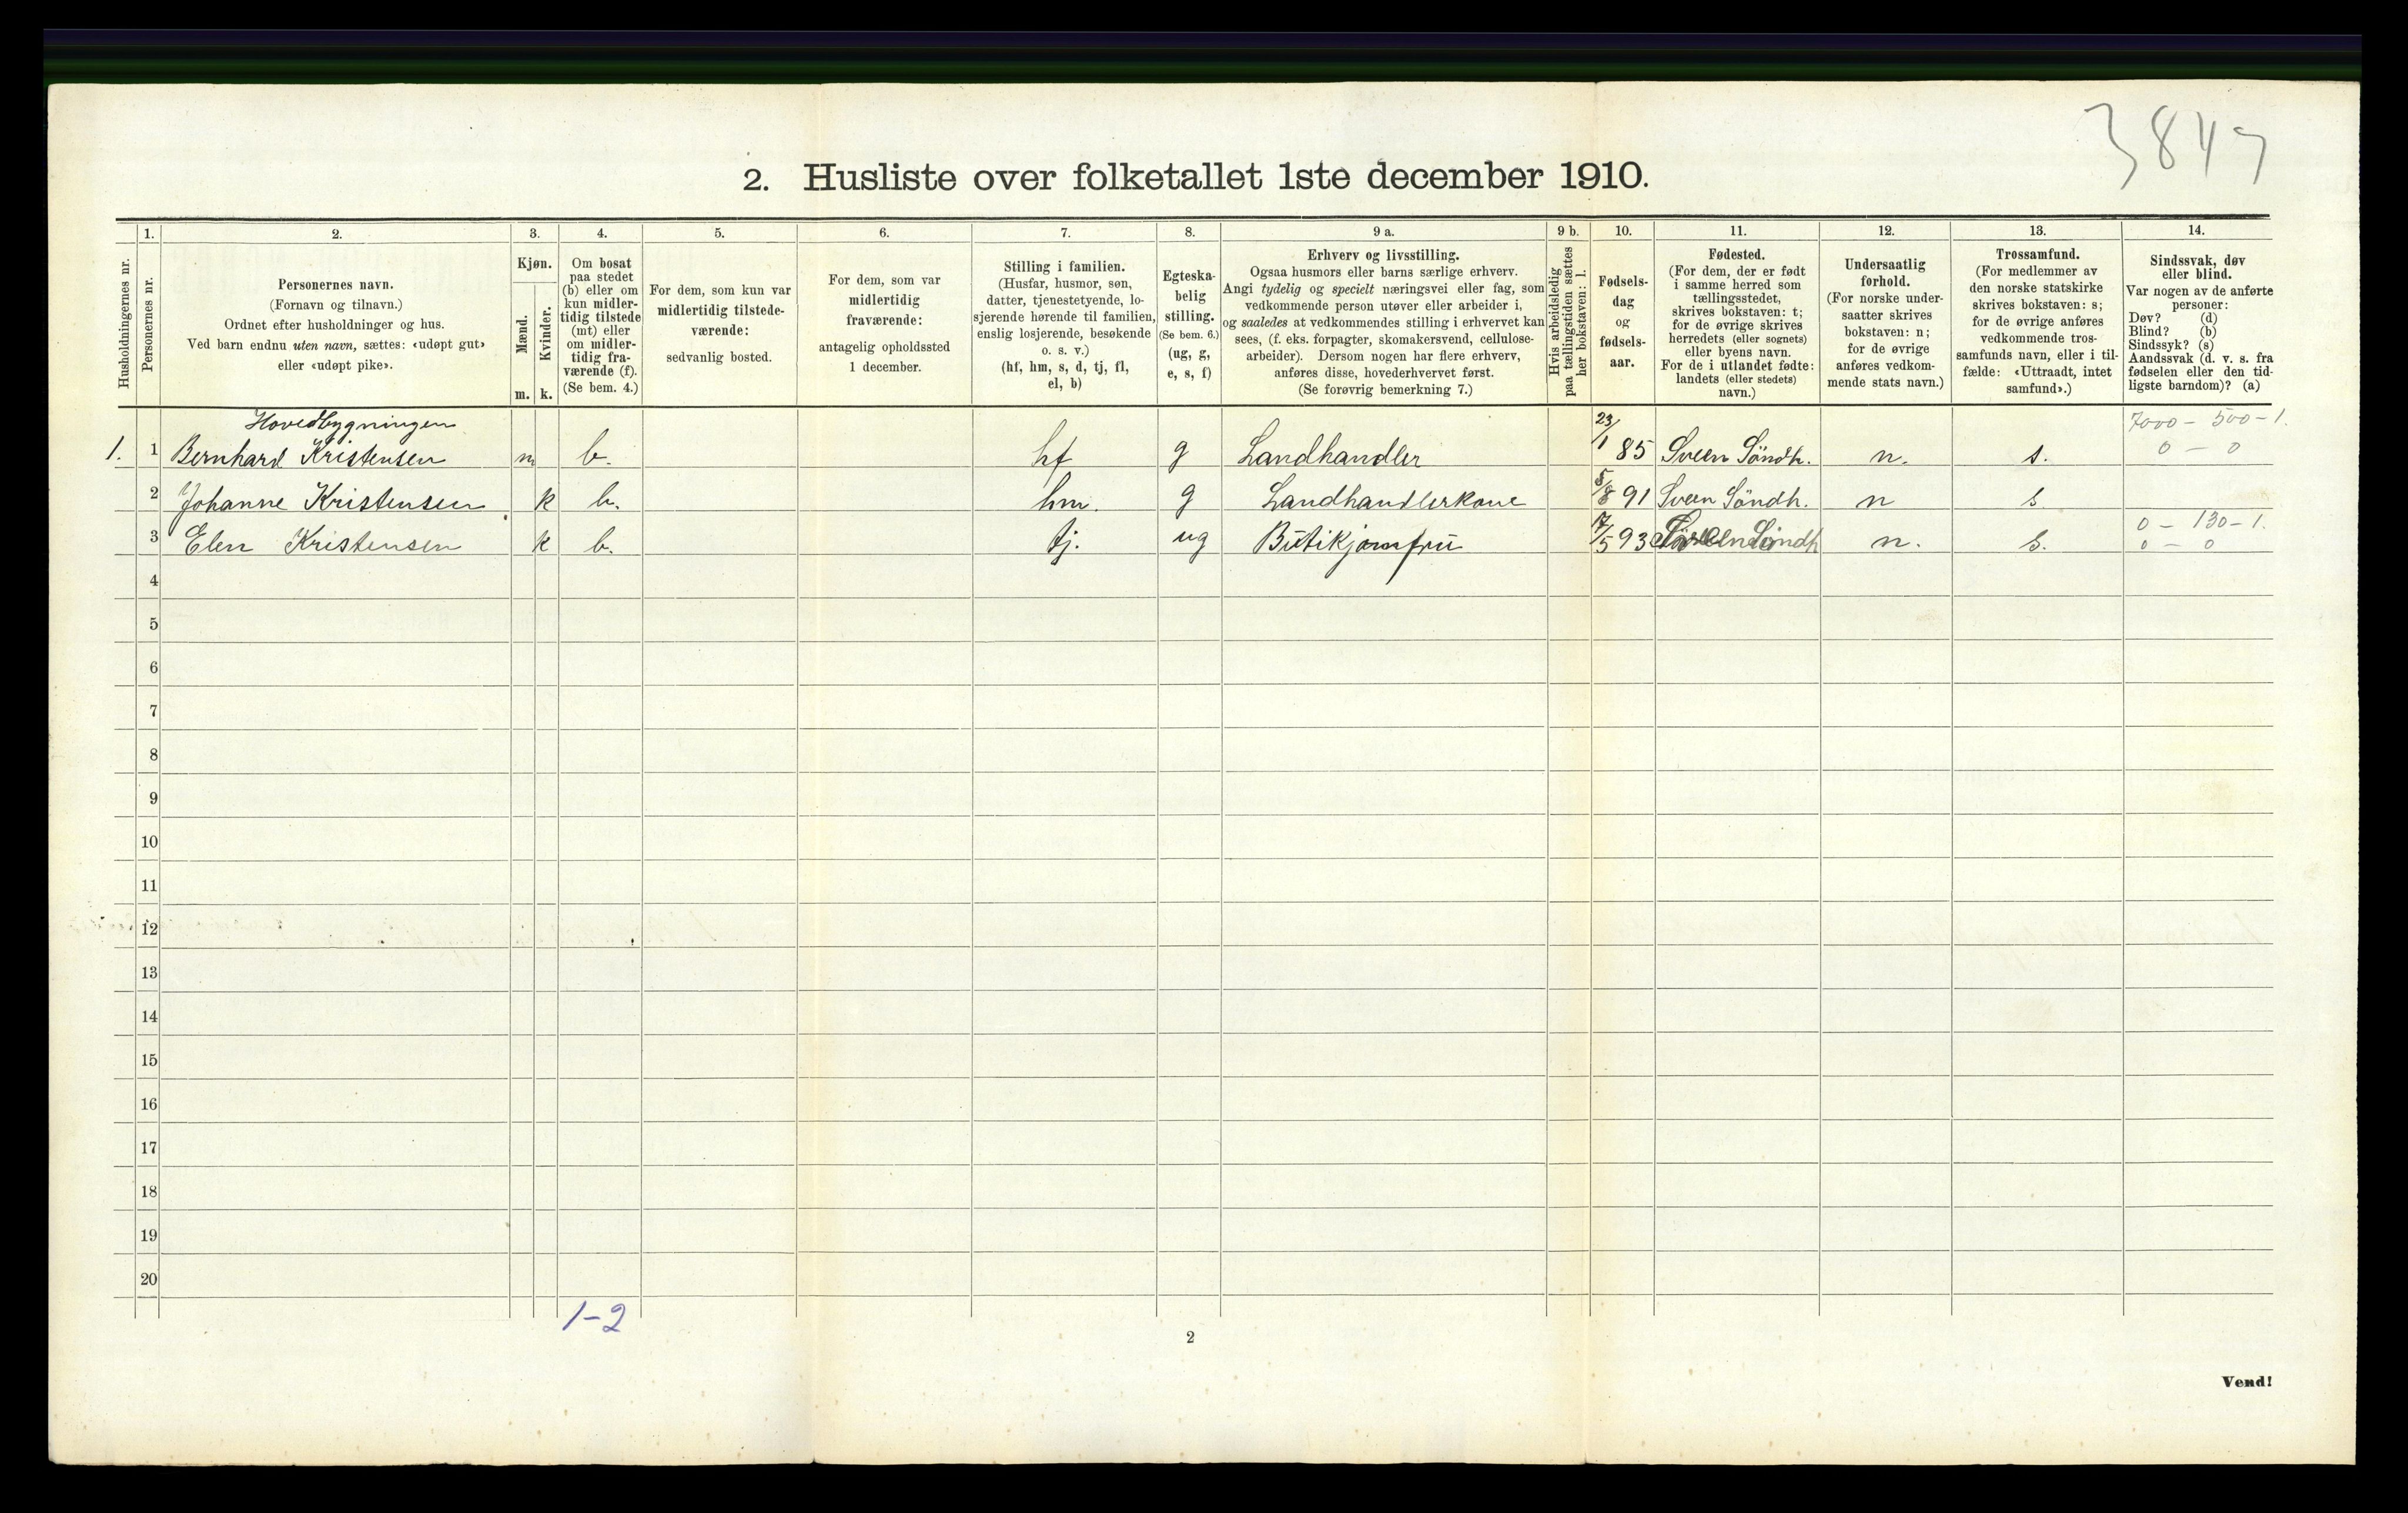 3847
2. Husliste over folketallet 1ste december 1910.
Husholdningernes nr.
1.
Personernes nr.
2.
Personernes navn.
(Fornavn og tilnavn.)
Ordnet efter husholdninger og hus.
Ved barn endnu uten navn, sættes: «udøpt gut»
eller «udøpt pike».
3.
Kjøn.
Mænd.
Kvinder.
m. k.
4.
Om bosat
paa stedet
(b) eller om
kun midler-
tidig tilstede
(mt) eller
om midler-
tidig fra-
værende (f).
(Se bem. 4.)
5.
For dem, som kun var
midlertidig tilstede-
værende:
sedvanlig bosted.
6.
For dem, som var
midlertidig
fraværende:
antagelig opholdssted
1 december.
7.
Stilling i familien.
(Husfar, husmor, søn,
datter, tjenestetyende, lo-
sjerende hørende til familien,
enslig losjerende, besøkende
o. s. v.)
(hf, hm, s, d, tj, fl,
el, b)
8.
Egteska-
belig
stilling.
(Se bem. 6.)
(ug, g,
e, s, f)
9 a.
Erhverv og livsstilling.
Ogsaa husmors eller barns særlige erhverv.
Angi tydelig og specielt næringsvei eller fag, som
vedkommende person utøver eller arbeider i,
og saaledes at vedkommendes stilling i erhvervet kan
sees, (f. eks. forpagter, skomakersvend, cellulose-
arbeider). Dersom nogen har flere erhverv,
anføres disse, hovederhvervet først.
(Se forøvrig bemerkning 7.)
9 b.
Hvis arbeidsledig
paa tællingstiden sættes
her bokstaven: l.
10.
Fødsels-
dag
og
fødsels-
aar.
11.
Fødested.
(For dem, der er født
i samme herred som
tællingsstedet,
skrives bokstaven: t;
for de øvrige skrives
herredets (eller sognets)
eller byens navn.
For de i utlandet fødte:
landets (eller stedets)
navn.)
12.
Undersaatlig
forhold.
(For norske under-
saatter skrives
bokstaven: n;
for de øvrige
anføres vedkom-
mende stats navn.)
13.
Trossamfund.
(For medlemmer av
den norske statskirke
skrives bokstaven: s;
for de øvrige anføres
vedkommende tros-
samfunds navn, eller i til-
fælde: «Uttraadt, intet
samfund».)
14.
Sindssvak, døv
eller blind.
Var nogen av de anførte
personer:
Døv? (d)
Blind? (b)
Sindssyk? (s)
Aandssvak (d. v. s. fra
fødselen eller den tid-
ligste barndom)? (a)
Hovedbygningen 7000 - 500 - 1.
1. 1 Bernhard Kristensen m b. hf g Landhandler 23/1 85 Sveen Söndh. n. s. 0 - 0
2 Johanne Kristensen k b. hm. g Landhandlerkone 5/8 91 Sveen Söndh. n s.
3 Elen Kristensen k b. tj. ug Butikjomfru 17/5 93 Söndh n. s. 0 - 130 - 1.
0 - 0
4
5
6
7
8
9
10
11
12
13
14
15
16
17
18
19
20
1-2
2
Vend!